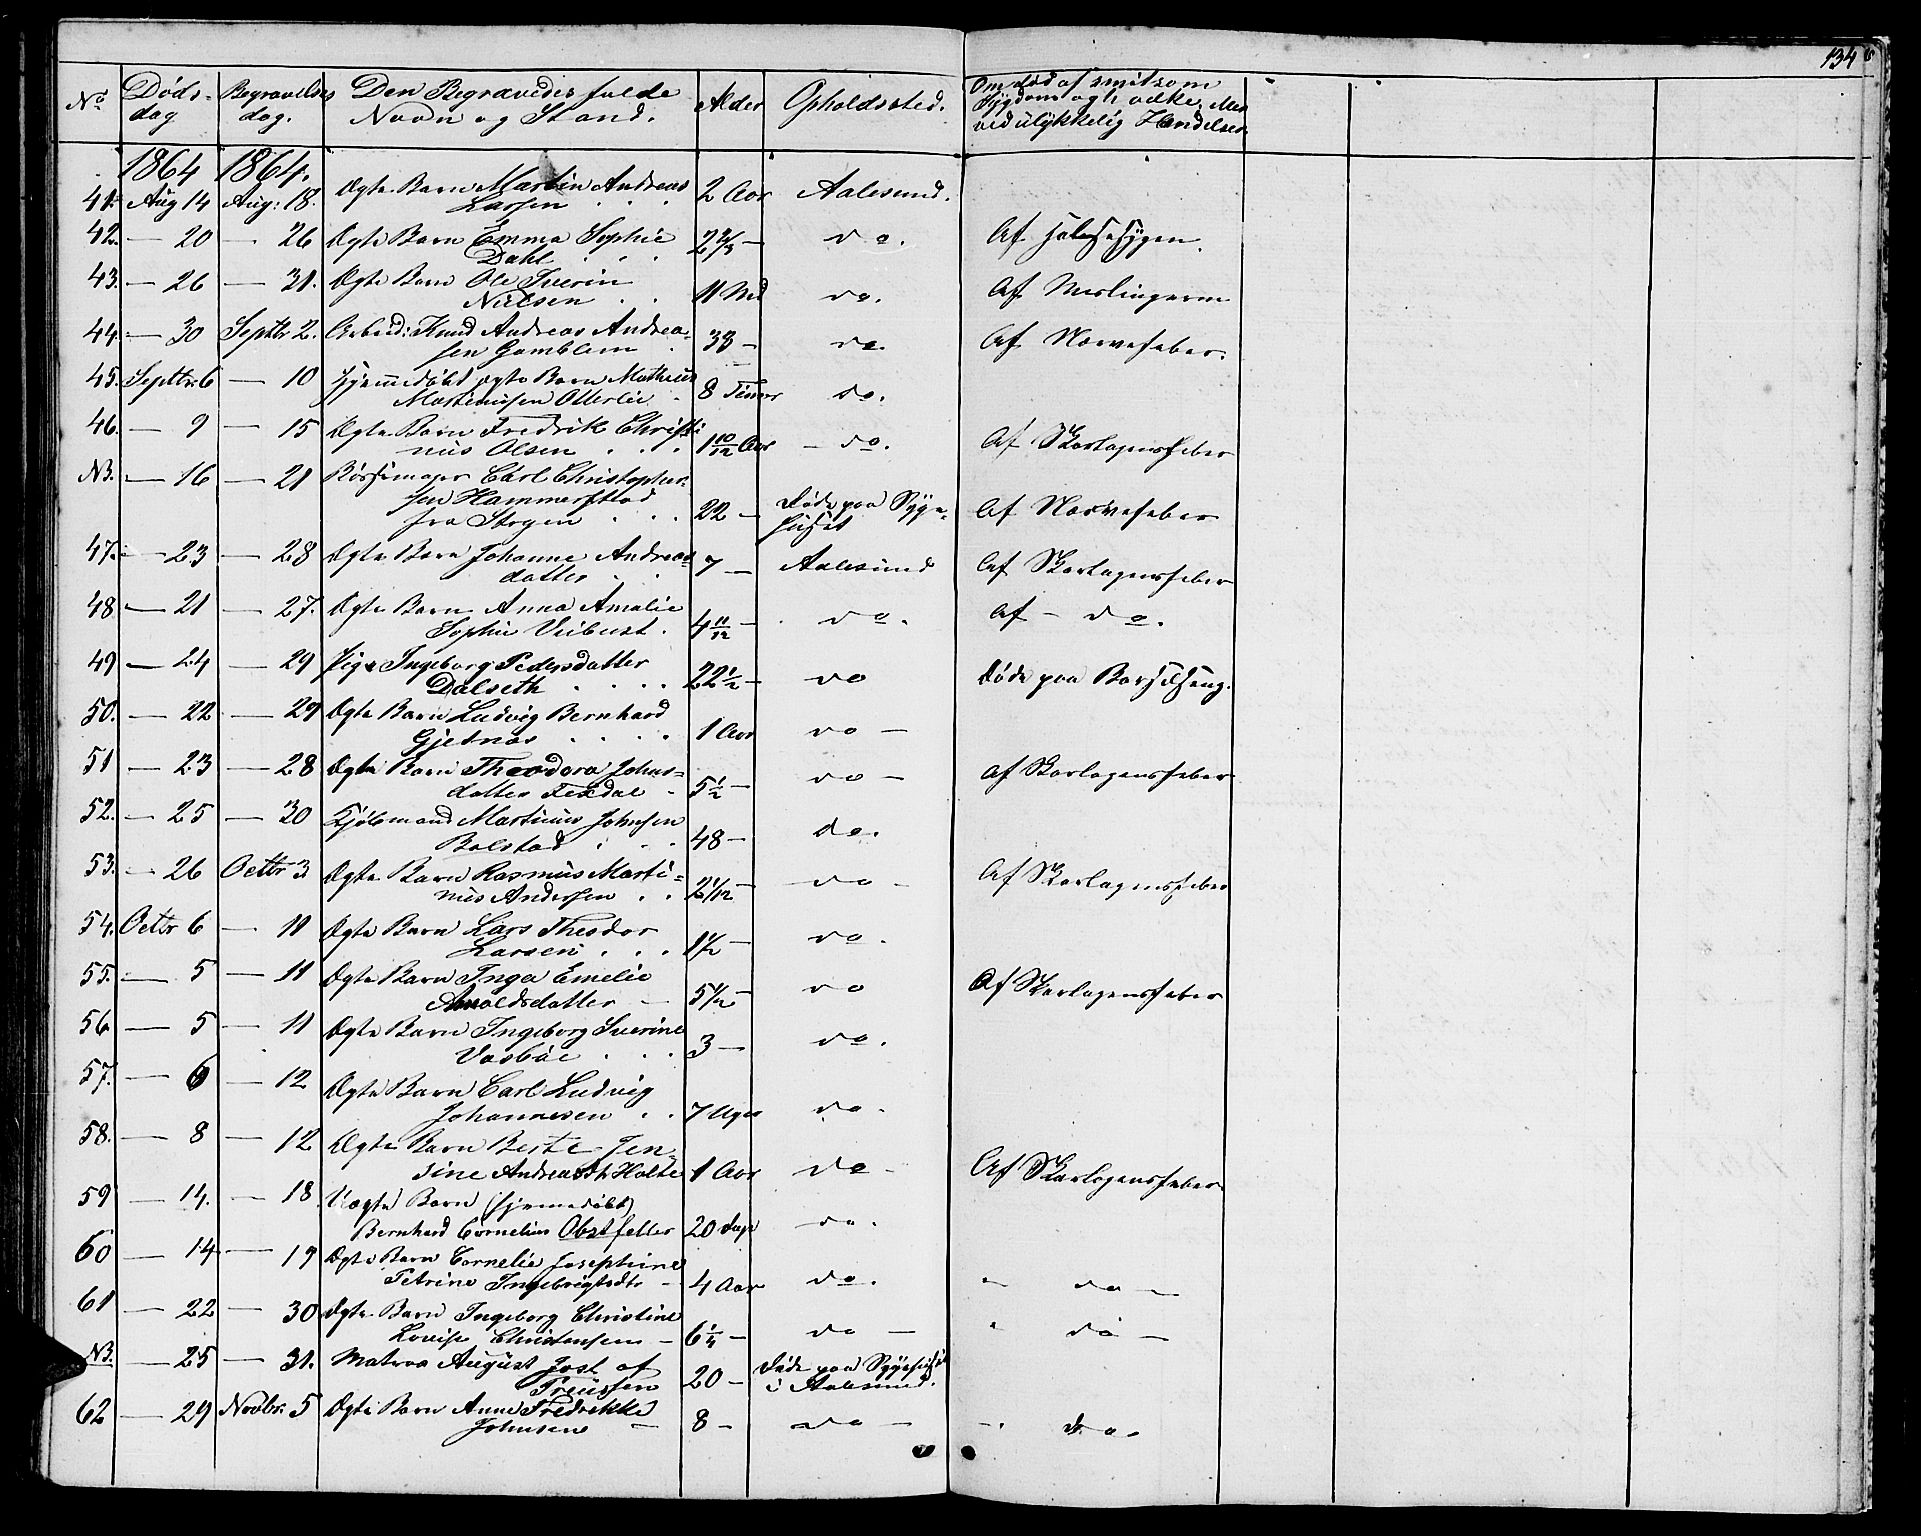 134
No Døds- dag Begravelses dag. Den Begravedes fulde Navn og Stand. Alder Opholdssted. Om død af smitsom Sygdom og hvilken, Men ved ulykkelig Hændelser
1864 1864.
41. Aug 14 Aug: 18. Ægte Barn Martin Andreas Larsen 2 Aar Aalesund.
42. — 20 — 26 Ægte Barn Emma Sophie Dahl 2 2/3 — do. Af Halssygen.
43. — 26 — 31. Ægte Barn Ole Iverin Nielsen 11 Md do. Af Meslingerne
44. — 30 Septbr 2. Arbeid: Knud Andreas Andrea- sen Gamblem 33 — do. Af Nerveseber.
45. Septbr 6 — 10 Hjemmedøbt ægte Barn Matheus Martinusen Otterlei 8 Timer do.
46. — 9 — 15 Ægte Barn Fredrik Christi- nus Olsen 1 10/12 Aar — do. Af Skarlagensfeber
NB. — 16 — 21 Børsemager Carl Christopher- sen Hammerstad fra Skogen 22 — Døde paa Syge- huset Af Nerveseber
47. — 23 — 28 Ægte Barn Johanne Andreas- datter 7 — Aalesund Af Skarlagensfeber
48 — 21 — 27. Ægte Barn Anna Amalie Sophie Veibust. 4 11/12 — do. Af — do.
49 — 24 — 29 Pige Ingeborg Pedersdatter Dalseth 22 1/2 — do Døde paa Barselseng.
50. — 22 — 29 Ægte Barn Ludvig Bernhard Gjetnæs 1 Aar do —
51 — 23 — 28 Ægte Barn Theodora Johns- datter Fexdal 5 1/2 — do — af Skarlagensfeber
52. — 25 — 30 Kjøbmand Martinus Johnsen Bolstad 48 — do.
53. — 26 Octbr 3 Ægte Barn Rasmus Marti- nus Andersen 2 1/12 — do — Af Skarlagensfeber
54. Octbr 6 — 11 Ægte Barn Lars Theodor Larsen 1 1/2 — do.
55. — 5 — 11 Ægte Barn Inga Emelie Arnoldsdatter — 5 1/12 — do Af Skarlagensfeber
56 — 5 — 11 Ægte Barn Ingeborg Iverine Vasbøe 3 — do.
57. — 6 — 12 Ægte Barn Carl Ludvig Johannesen 7 Uger do.
58. — 8 — 12 Ægte Barn Berte Jen- sine Andreasdtr Holte 1 Aar do — Af Skarlagensfeber
59 — 14. — 18 Uægte Barn (hjemmedøbt) Bernhard Cornelius Obstfelter 20 Dage do.
60 — 14 — 19 Ægte Barn Cornelia Josephine Petrine Ingebrigtsdtr — 4 Aar do. " do —
61 — 22 — 30 Ægte Barn Ingeborg Christine Lovise Christensen — 6 1/4 — do — " do —
NB. — 25 — 31. Matros August Jost af Preussen 20 — Døde paa Sygehuset i Aalesund.
62 — 29 Novbr. 5 Ægte Barn Anne Fredrikke Johnsen — 8 — do — — do.